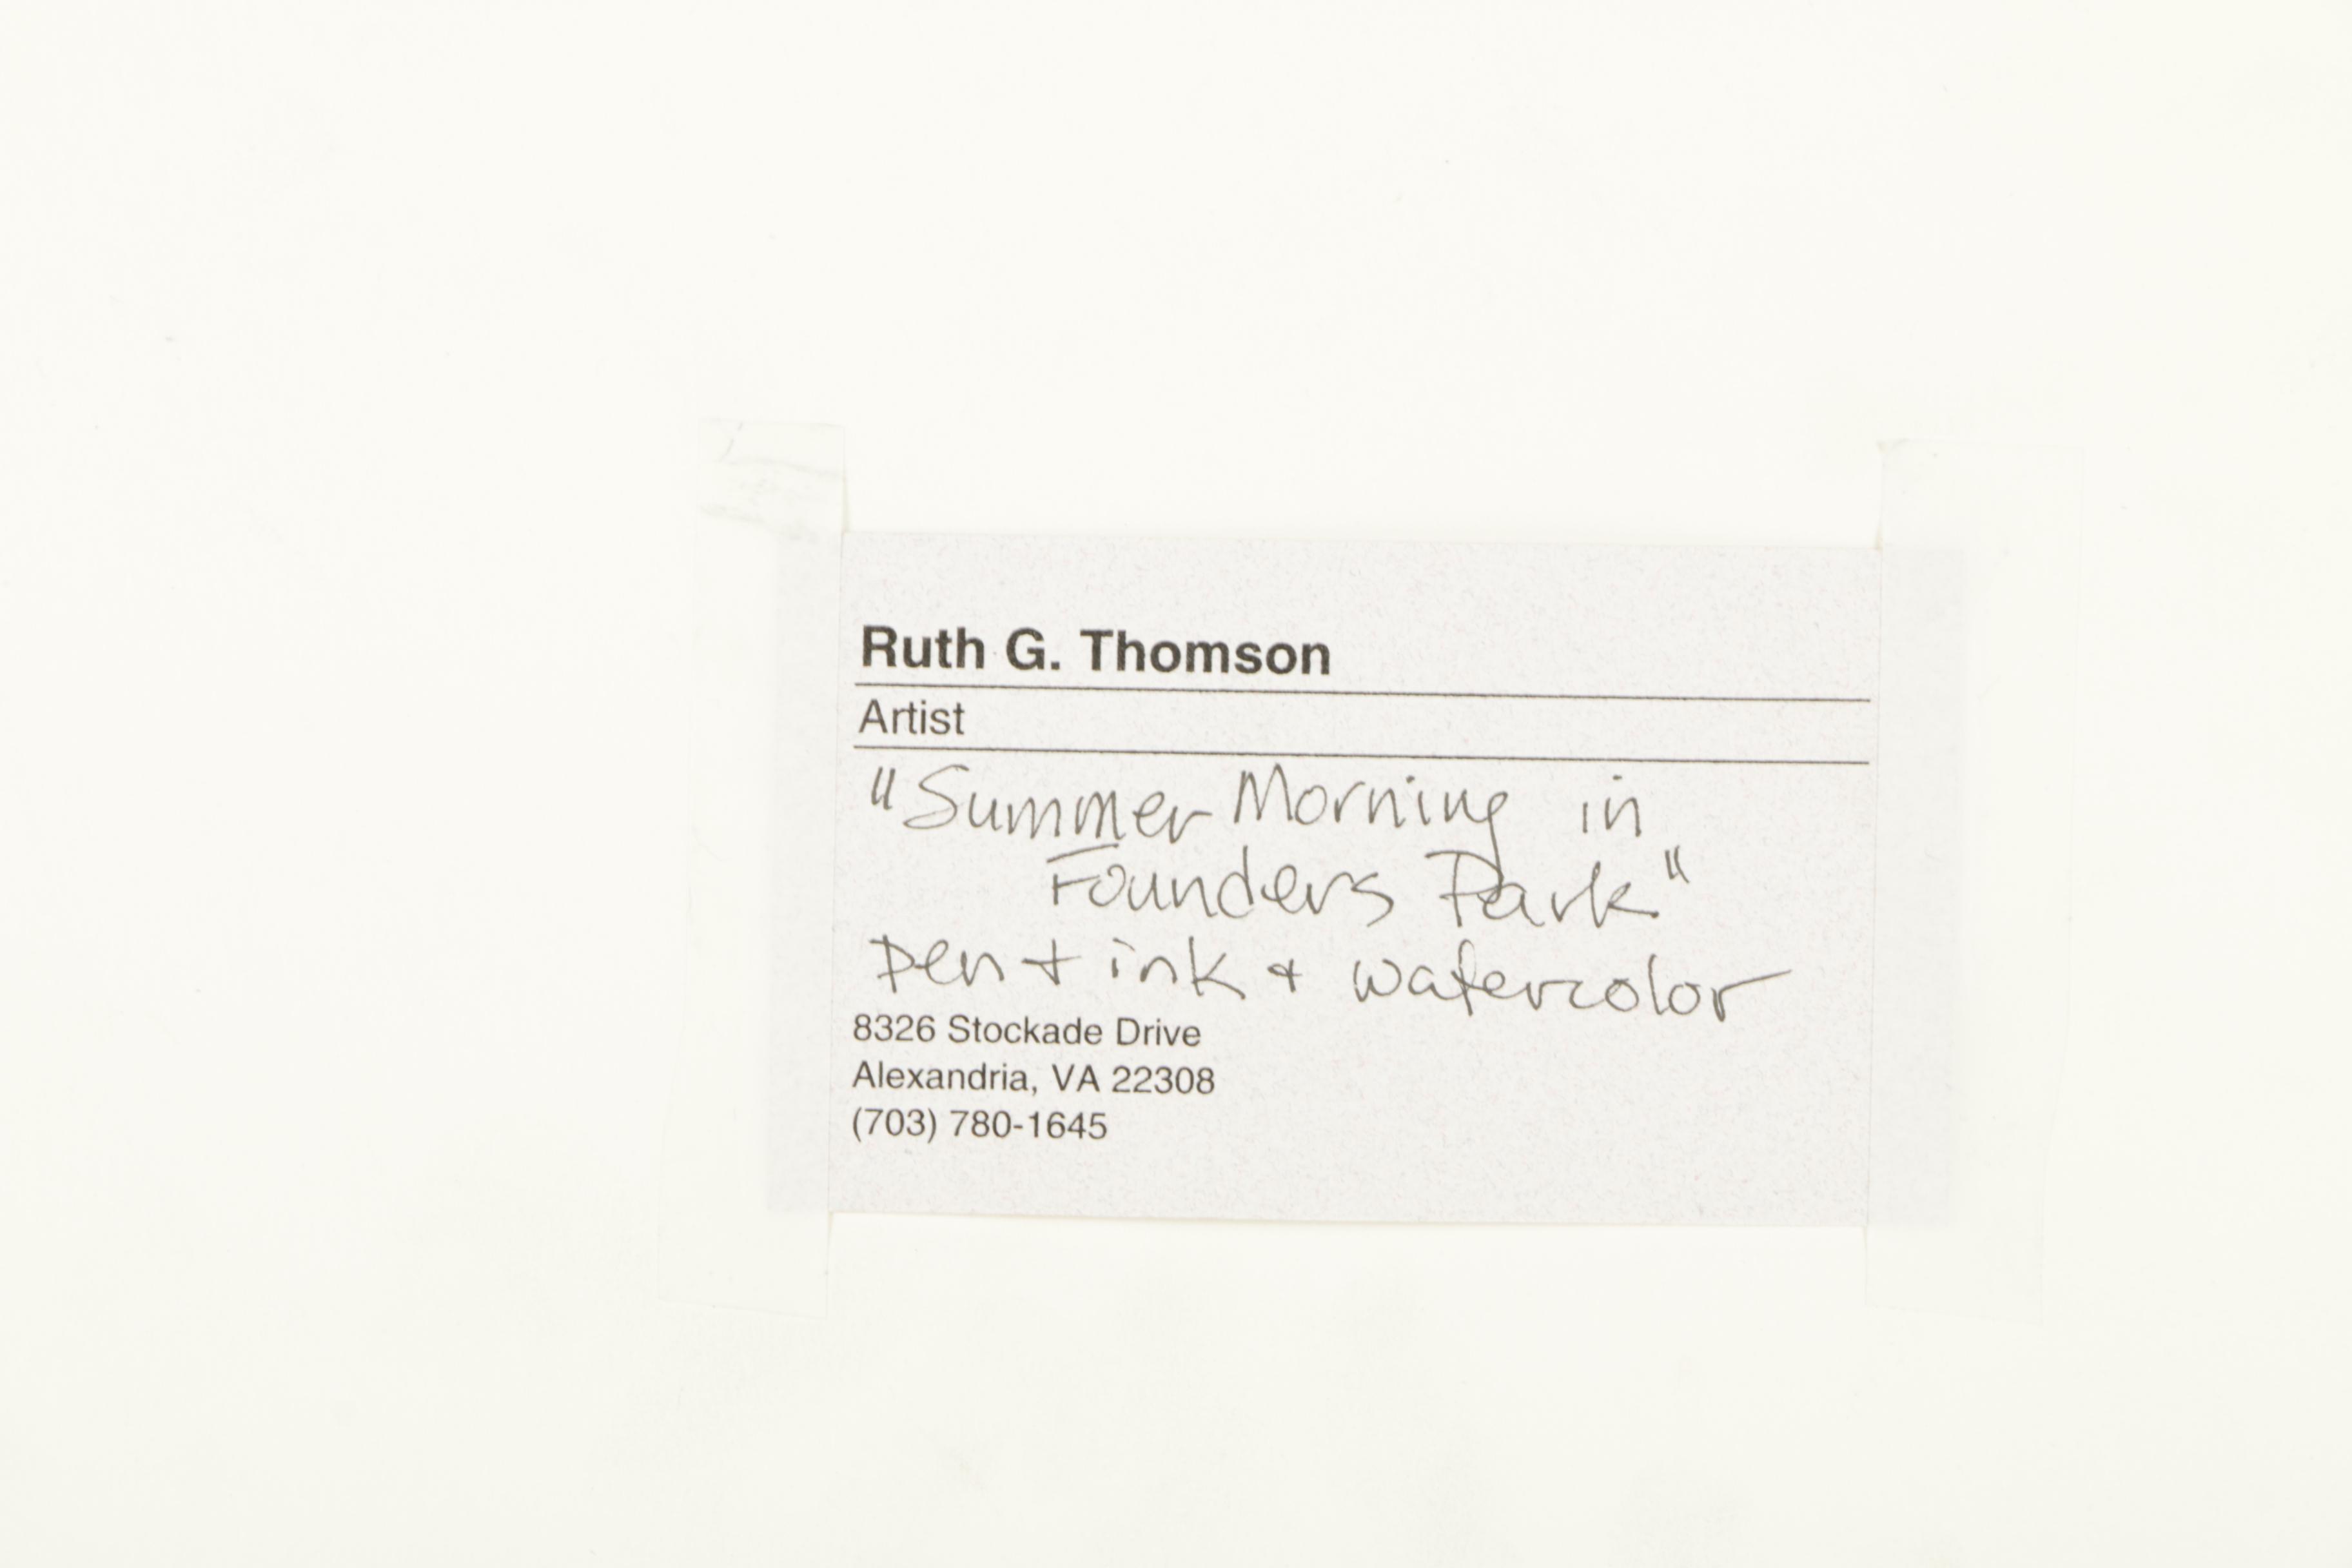 Ruth G. Thomson
Artist
"Summer Morning in
Founders Park"
pen + ink + watercolor
8326 Stockade Drive
Alexandria, VA 22308
(703) 780-1645